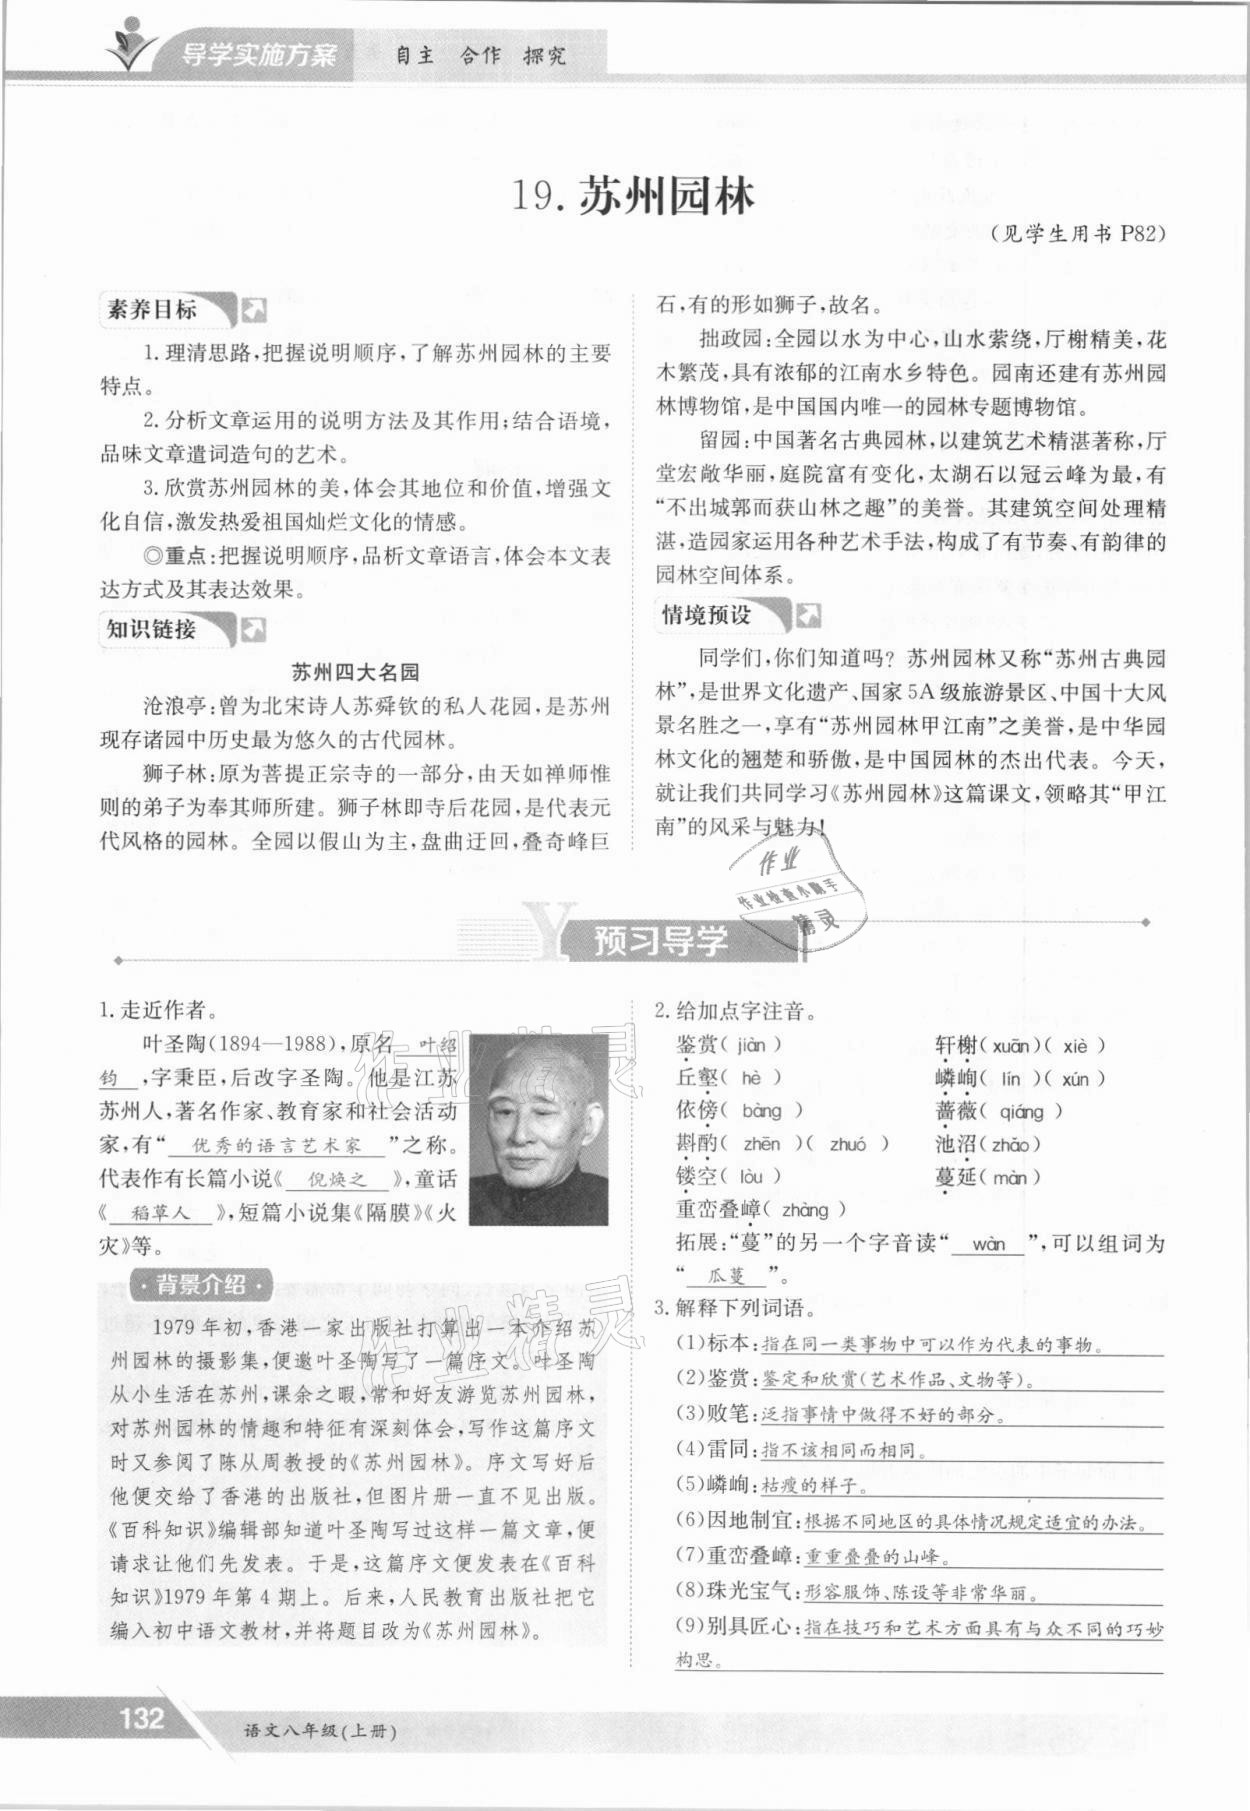 导学实施方案 自主 合作 探究
19. 苏州园林
(见学生用书 P82)
素养目标
1. 理清思路,把握说明顺序,了解苏州园林的主要
特点。
2. 分析文章运用的说明方法及其作用;结合语境,
品味文章遣词造句的艺术。
3. 欣赏苏州园林的美,体会其地位和价值,增强文
化自信,激发热爱祖国灿烂文化的情感。
◎重点:把握说明顺序,品析文章语言,体会本文表
达方式及其表达效果。
知识链接
苏州四大名园
沧浪亭:曾为北宋诗人苏舜钦的私人花园,是苏州
现存诸园中历史最为悠久的古代园林。
狮子林:原为菩提正宗寺的一部分,由天如禅师惟
则的弟子为奉其师所建。狮子林即寺后花园,是代表元
代风格的园林。全园以假山为主,盘曲迂回,叠奇峰巨
石,有的形如狮子,故名。
拙政园:全园以水为中心,山水萦绕,厅榭精美,花
木繁茂,具有浓郁的江南水乡特色。园南还建有苏州园
林博物馆,是中国国内唯一的园林专题博物馆。
留园:中国著名古典园林,以建筑艺术精湛著称,厅
堂宏敞华丽,庭院富有变化,太湖石以冠云峰为最,有
“不出城郭而获山林之趣”的美誉。其建筑空间处理精
湛,造园家运用各种艺术手法,构成了有节奏、有韵律的
园林空间体系。
情境预设
同学们,你们知道吗?苏州园林又称“苏州古典园
林”,是世界文化遗产、国家 5A 级旅游景区、中国十大风
景名胜之一,享有“苏州园林甲江南”之美誉,是中华园
林文化的翘楚和骄傲,是中国园林的杰出代表。今天,
就让我们共同学习《苏州园林》这篇课文,领略其“甲江
南”的风采与魅力!
作业
作业检查小助手
精灵
Y 预习导学
1. 走近作者。
叶圣陶(1894—1988),原名 叶绍
钧 ,字秉臣,后改字圣陶。他是江苏
苏州人,著名作家、教育家和社会活动
家,有“ 优秀的语言艺术家 ”之称。
代表作有长篇小说《 倪焕之 》,童话
《 稻草人 》,短篇小说集《隔膜》《火
灾》等。
· 背景介绍 ·
1979 年初,香港一家出版社打算出一本介绍苏
州园林的摄影集,便邀叶圣陶写了一篇序文。叶圣陶
从小生活在苏州,课余之暇,常和好友游览苏州园林,
对苏州园林的情趣和特征有深刻体会,写作这篇序文
时又参阅了陈从周教授的《苏州园林》。序文写好后
他便交给了香港的出版社,但图片册一直不见出版。
《百科知识》编辑部知道叶圣陶写过这样一篇文章,便
请求让他们先发表。于是,这篇序文便发表在《百科
知识》1979 年第 4 期上。后来,人民教育出版社把它
编入初中语文教材,并将题目改为《苏州园林》。
2. 给加点字注音。
鉴赏( jiàn ) 轩榭( xuān )( xiè )
丘壑( hè ) 嶙峋( lín )( xún )
依傍( bàng ) 蔷薇( qiáng )
斟酌( zhēn )( zhuó ) 池沼( zhǎo )
镂空( lòu ) 蔓延( màn )
重峦叠嶂( zhàng )
拓展:“蔓”的另一个字音读“ wàn ”,可以组词为
“ 瓜蔓 ”。
3. 解释下列词语。
(1)标本:指在同一类事物中可以作为代表的事物。
(2)鉴赏:鉴定和欣赏(艺术作品、文物等)。
(3)败笔:泛指事情中做得不好的部分。
(4)雷同:指不该相同而相同。
(5)嶙峋:枯瘦的样子。
(6)因地制宜:根据不同地区的具体情况规定适宜的办法。
(7)重峦叠嶂:重重叠叠的山峰。
(8)珠光宝气:形容服饰、陈设等非常华丽。
(9)别具匠心:指在技巧和艺术方面具有与众不同的巧妙
构思。
作业精灵
作业精灵
132 语文八年级(上册)